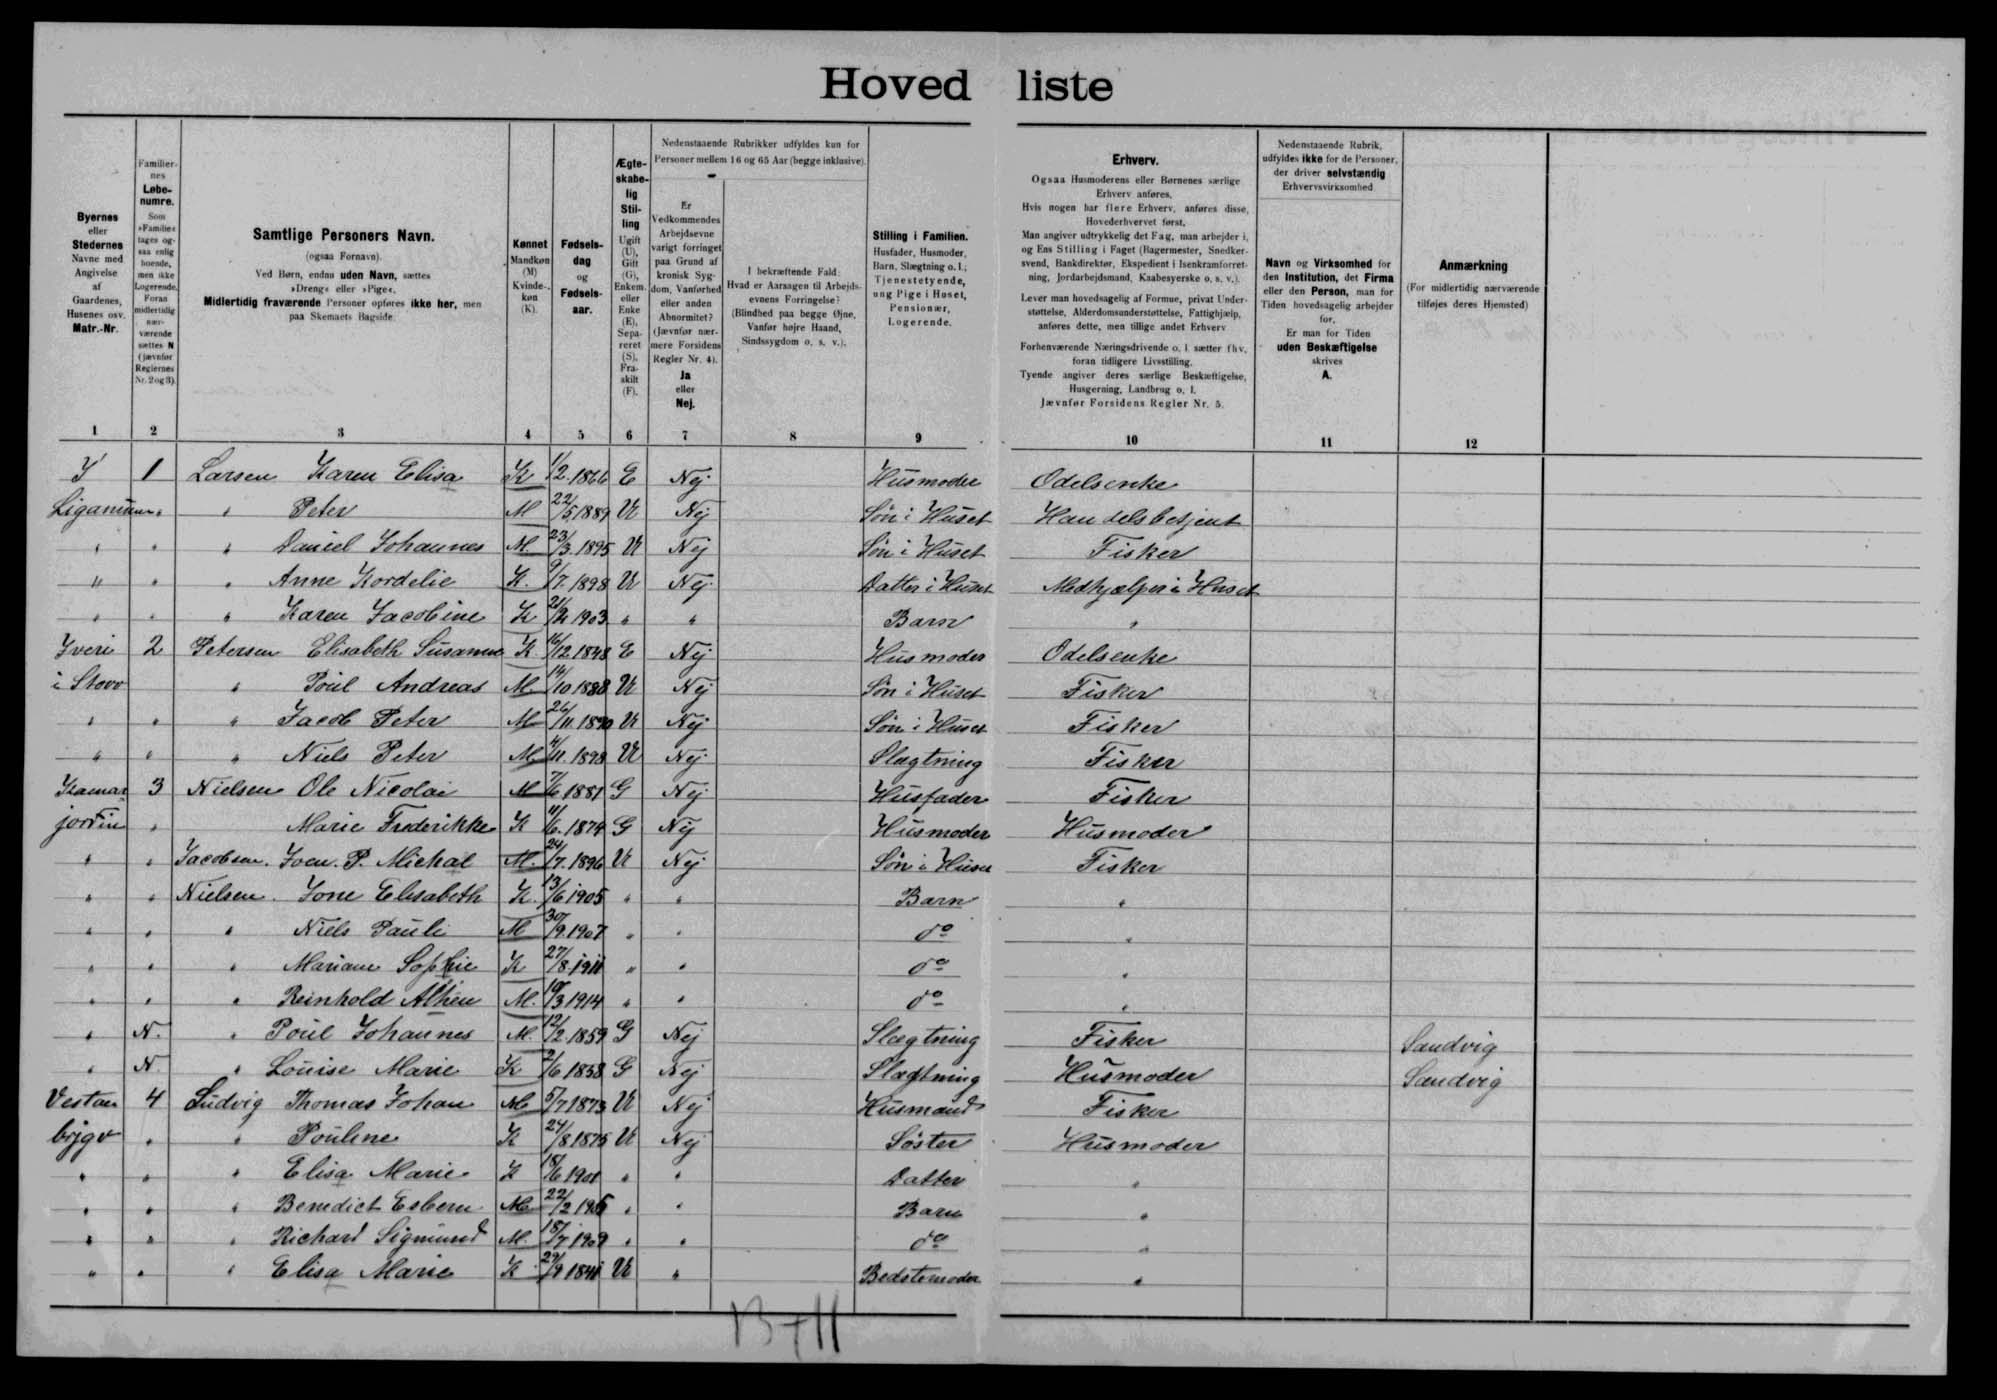 Hoved liste
Byernes eller Stedernes Navne med Angivelse af Gaardenes, Husenes osv. Matr.-Nr.
Familiernes Løbenumre. Som »Familie« tages ogsaa enlig boende, men ikke Logerende. Foran midlertidig nærværende sættes N (jævnfør Reglernes Nr. 2 og 3).
Samtlige Personers Navn.
(ogsaa Fornavn).
Ved Børn, endnu uden Navn, sættes
»Dreng« eller »Pige«.
Midlertidig fraværende Personer opføres ikke her, men
paa Skemaets Bagside.
Kønnet Mandkøn (M) Kvindekøn (K).
Fødselsdag og Fødselsaar.
Ægteskabelig Stilling Ugift (U), Gift (G), Enkem. eller Enke (E), Separeret (S), Fraskilt (F).
Nedenstaaende Rubrikker udfyldes kun for
Personer mellem 16 og 65 Aar (begge inklusive).
Er Vedkommendes Arbejdsevne varigt forringet paa Grund af kronisk Sygdom, Vanførhed eller anden Abnormitet? (Jævnfør nærmere Forsidens Regler Nr. 4). Ja eller Nej.
I bekræftende Fald: Hvad er Aarsagen til Arbejdsevnens Forringelse? (Blindhed paa begge Øjne, Vanfør højre Haand, Sindssygdom o. s. v.).
Stilling i Familien. Husfader, Husmoder, Barn, Slægtning o. l.; Tjenestetyende, ung Pige i Huset, Pensionær, Logerende.
Erhverv.
Ogsaa Husmoderens eller Børnenes særlige
Erhverv anføres.
Hvis nogen har flere Erhverv, anføres disse,
Hovederhvervet først.
Man angiver udtrykkelig det Fag, man arbejder i,
og Ens Stilling i Faget (Bagermester, Snedkersvend,
Bankdirektør, Ekspedient i Isenkramforretning,
Jordarbejdsmand, Kaabesyerske o. s. v.).
Lever man hovedsagelig af Formue, privat Understøttelse,
Alderdomsunderstøttelse, Fattighjælp,
anføres dette, men tillige andet Erhverv.
Forhenværende Næringsdrivende o. l. sætter fhv.
foran tidligere Livsstilling.
Tyende angiver deres særlige Beskæftigelse,
Husgerning, Landbrug o. l.
Jævnfør Forsidens Regler Nr. 5.
Nedenstaaende Rubrik,
udfyldes ikke for de Personer,
der driver selvstændig
Erhvervsvirksomhed
Navn og Virksomhed for
den Institution, det Firma
eller den Person, man for
Tiden hovedsagelig arbejder
for.
Er man for Tiden
uden Beskæftigelse
skrives
A.
Anmærkning
(For midlertidig nærværende
tilføjes deres Hjemsted)
1 2 3 4 5 6 7 8 9 10 11 12
Y 1 Larsen Karen Elisa K 1/2 1866 E Nej Husmoder Odelsenke
" " Peter M 22/5 1889 U Nej Søn i Huset Handelsbetjent
" " " Daniel Johannes M 23/3 1895 U Nej Søn i Huset Fisker
" " " Anne Kordelie K 9/7 1898 U Nej Datter i Huset Medhjælper i Huset
" " " Karen Jacobine K 1903 " " Barn "
Yveri 2 Petersen Elisabeth Susanne K 16/12 1848 E Nej Husmoder Odelsenke
i Stovo " Poul Andreas M 14/10 1888 U Nej Søn i Huset Fisker
" " " Jacob Peter M 26/11 1890 U Nej Søn i Huset Fisker
" " " Niels Peter M 4/11 1898 U Nej Slægtning Fisker
3 Nielsen Ole Nicolai M 7/6 1881 G Nej Husfader Fisker
" Marie Frederikke K 4/6 1874 G Nej Husmoder Husmoder
" " Jacobsen. Joen. P. Michal M. 24/7 1896 U Nej Søn i Huset Fisker
" " Nielsen. Jone Elisabeth K. 13/6 1905 " " Barn "
" " " Niels Pauli M 30/9 1907 " " do "
" " " Mariane Sophie K 27/8 1911 " " do "
" " " Reinhold M. 1914 " " do "
" N. " Poul Johannes M. 12/2 1859 G Nej Slægtning Fisker Sandvig
" N " Louise Marie K 2/6 1858 G Nej Slægtning Husmoder Sandvig
Vestan 4 Ludvig Thomas Johan M 5/7 1873 U Nej Husmand Fisker
bygv " " Pouline K 24/8 1875 U Nej Søster Husmoder
" " " Elisa Marie K 18/6 1901 " " Datter "
" " " Benedict Esbern M 22/2 " " Barn "
" " " Richard Sigmund M. 18/7 1909 " " do "
" " " Elisa Marie K 29/9 1841 U " Bedstemoder "
13+11